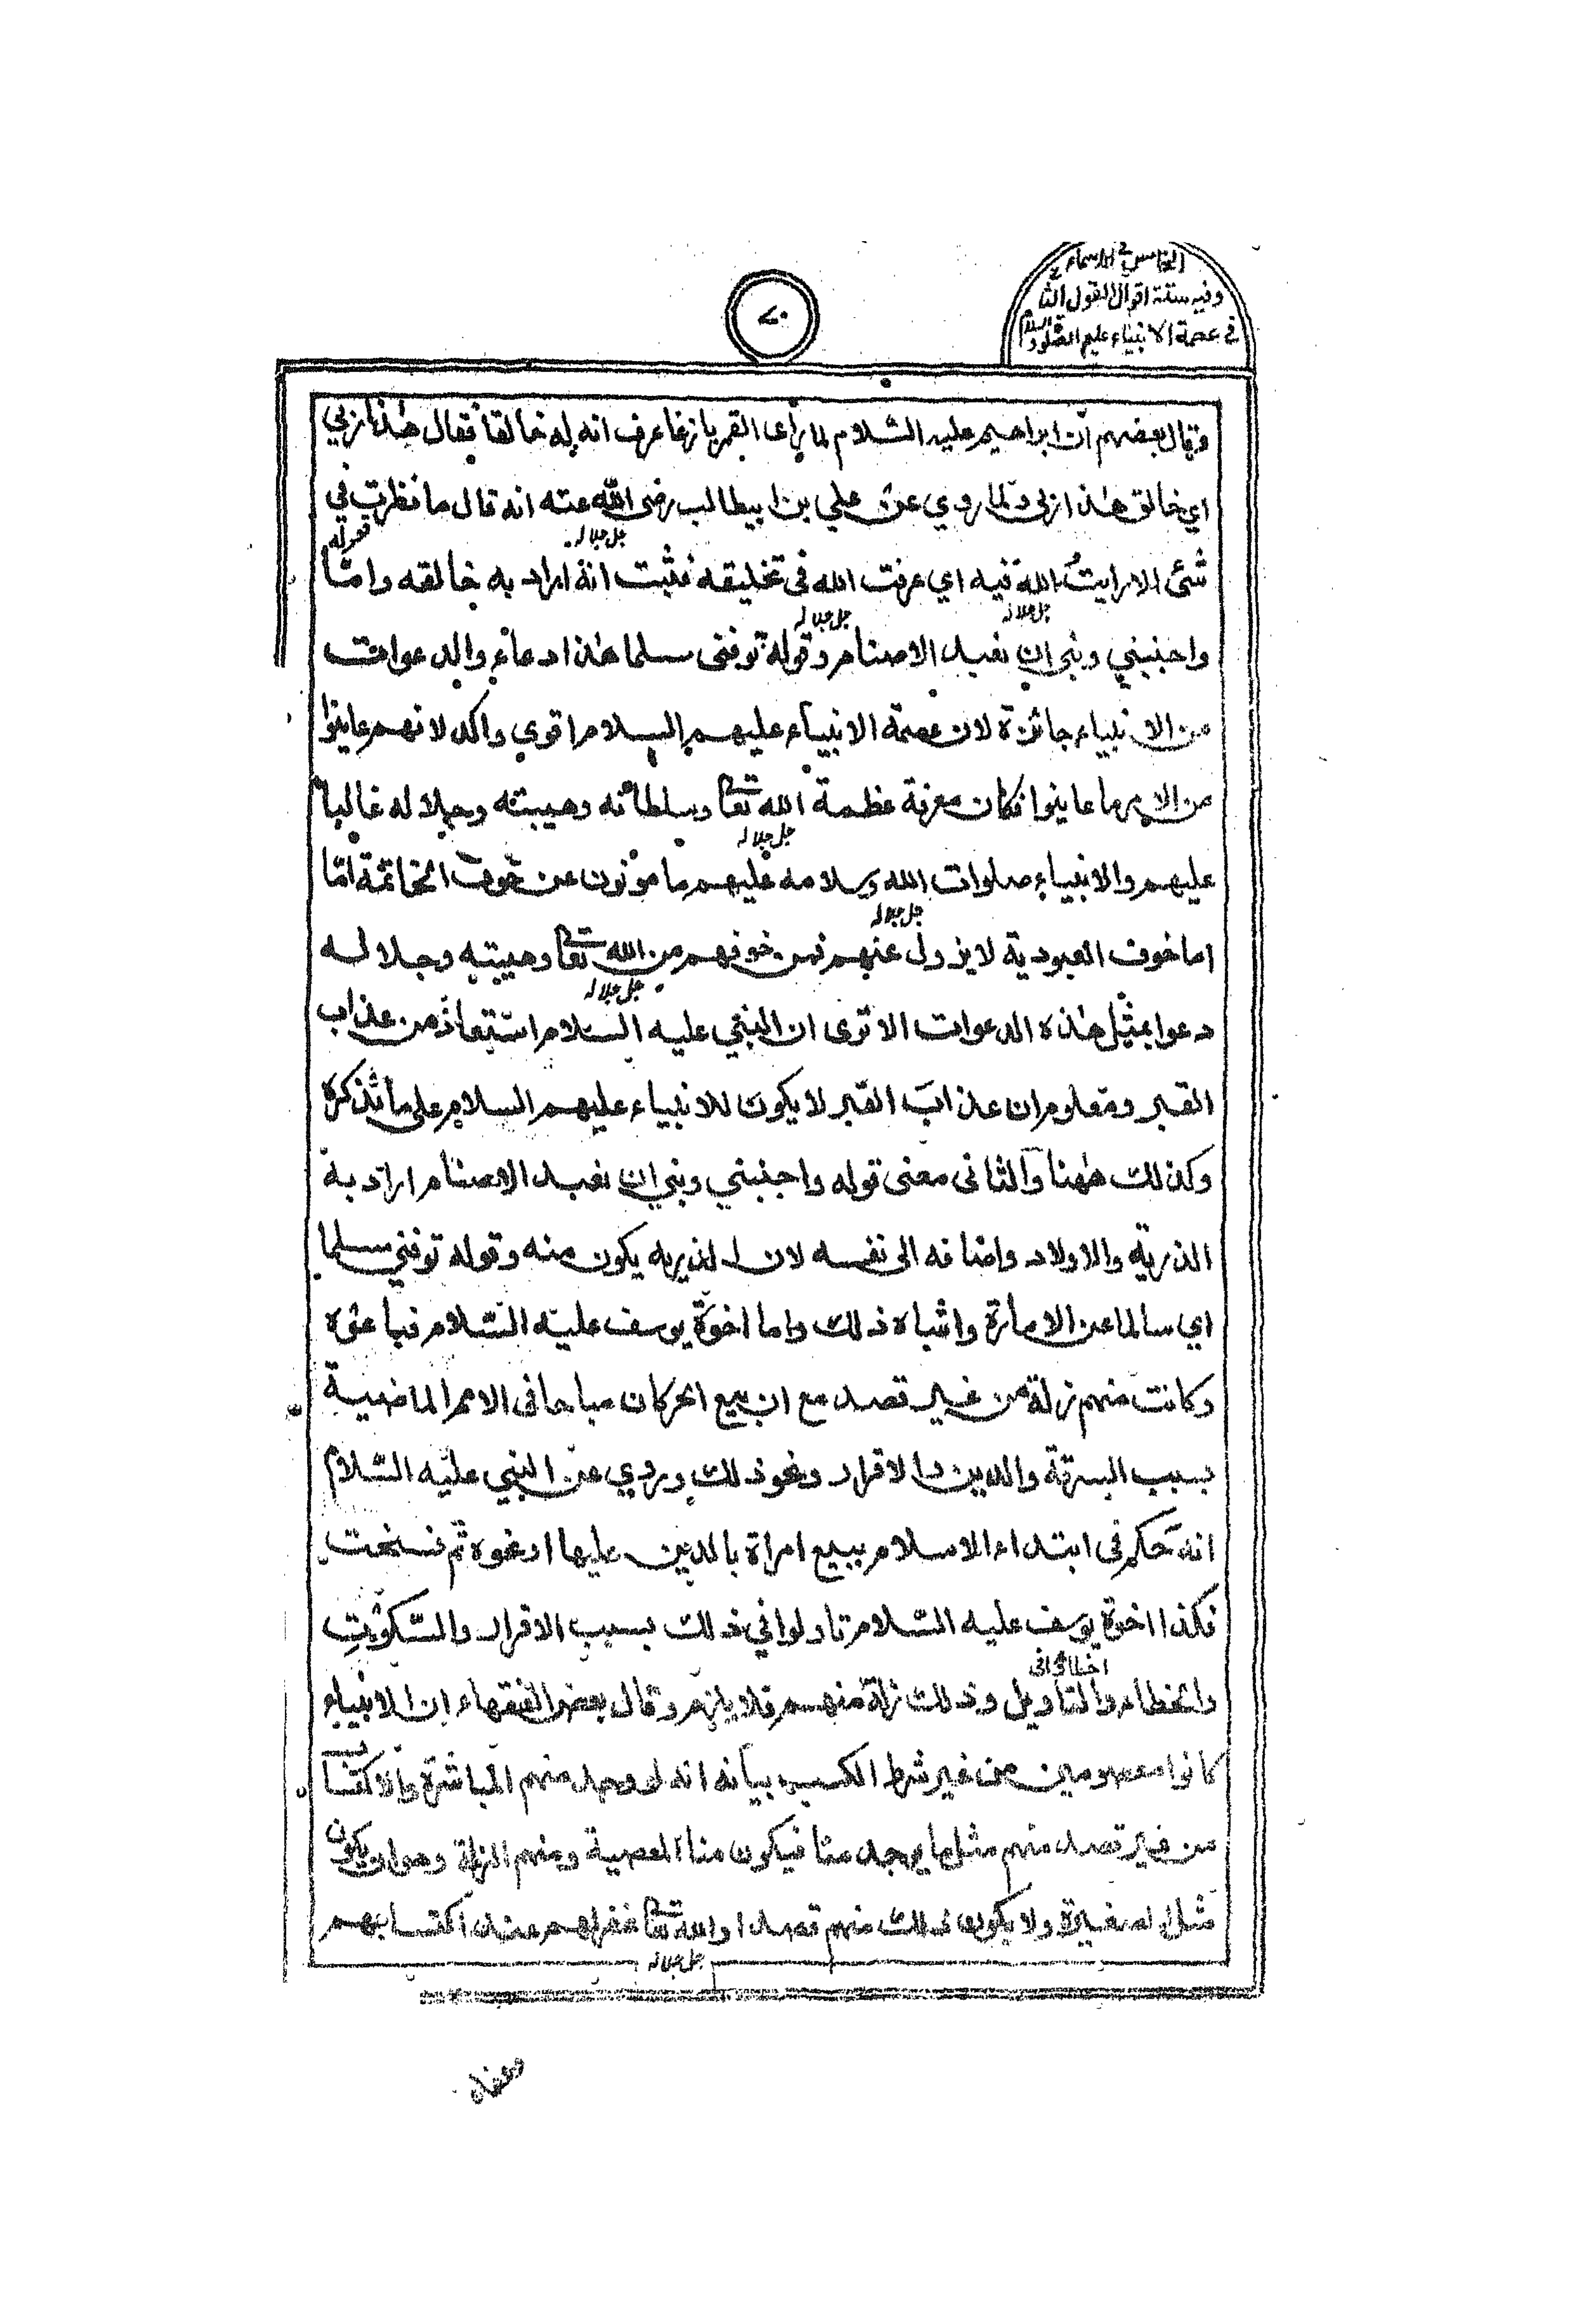 الخامس في الاسماء
وفيه ستة اقوال القول الثا
في عصمة الانبياء عليهم الصلوة والسلام
٧٠
وقال بعضهم ان ابراهيم عليه السلام لما رأى القمر بازغا عرف انه له خالقا فقال هذا ربي
اي خالق هذا ربي ولما روي عن علي بن ابيطالب رضى الله عنه انه قال ما نظرت في
جل جلاله
شئ الا رايت الله فيه اي عرفت الله فى تخليقه فثبت انه اراد به خالقه واما قوله
جل جلاله جل جلاله
واجنبني وبني ان نعبد الاصنام وقوله توفنى مسلما هذا دعاء والدعوات
من الانبياء جائزة لان عصمة الانبياء عليهم السلام اقوي واكد لانهم عاينوا
من الامر ما عاينوا فكان معرفة عظمة الله تعا وسلطانه وهيبته وجلاله غالبا
جل جلاله
عليهم والانبياء صلوات الله وسلامه عليهم مامونون عن خوف الخاتمة اما
جل جلاله
اما خوف العبودية لا يزول عنهم فمن خوفهم من الله تعا وهيبته وجلاله
جل جلاله
دعوا بمثل هذه الدعوات الا تري ان النبي عليه السلام استعاذ من عذاب
القبر ومعلوم ان عذاب القبر لا يكون للانبياء عليهم السلام على ما نذكره
وكذلك ههنا والثانى معنى قوله واجنبني وبني ان نعبد الاصنام اراد به
الذرية والاولاد واضافه الى نفسه لان الذرية يكون منه وقوله توفني مسلما
اي سالما عن الامارة واشباه ذلك واما اخوة يوسف عليه السلام فباعوه
وكانت منهم زلة من غير قصد مع ان بيع الحر كان مباحا فى الامم الماضية
بسبب السرقة والدين والاقرار ونحو ذلك وروي عن النبي عليه السلام
انه حكم فى ابتداء الاسلام ببيع امراة بالدين عليها او نحوه ثم نسخت
فكذا اخوة يوسف عليه السلام تاولوا في ذلك بسبب الاقرار والسكوت
اخطاؤا فى
والخطاء والتاويل وذلك زلة منهم فلا يلزم وقال بعض الفقهاء ان الانبياء
كانوا معصومين من غير شرط الكسب بيانه انه لو وجد منهم المباشرة والاكتساب
من غير قصد منهم مثل ما يوجد منا فيكون منا المعصية ومنهم الزلة وهو ان يكون
مثل الصغيرة ولا يكون ذلك منهم قصدا والله تعا غفر لهم عند اكتسابهم
جل جلاله